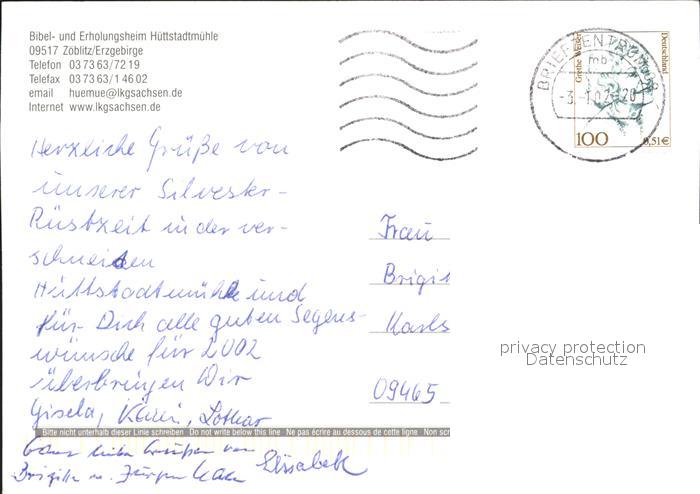 Bibel- und Erholungsheim Hüttstadtmühle
09517 Zöblitz/Erzgebirge
Telefon 03 73 63/7 2 19
Telefax 03 73 63/1 46 02
email huemue@lkgsachsen.de
Internet www.lkgsachsen.de
BRIEFZENTRUM
mb
-3.-1.02-20
Grethe Weiser
Deutschland
100 0,51€
Herzliche Grüße von
unserer Silvester-
Rüstzeit in der ver-
schneiten
Hüttstadtmühle und
für Dich alle guten Segens-
wünsche für 2002
überbringen Wir
Gisela, Karin, Lothar
Frau
Brigit
Karls
09465
privacy protection
Datenschutz
Bitte nicht unterhalb dieser Linie schreiben Do not write below this line Ne pas écrire au dessous de cette ligne Non scr
liebe Grüße von
Brigitte u. Jürgen Elisabeth